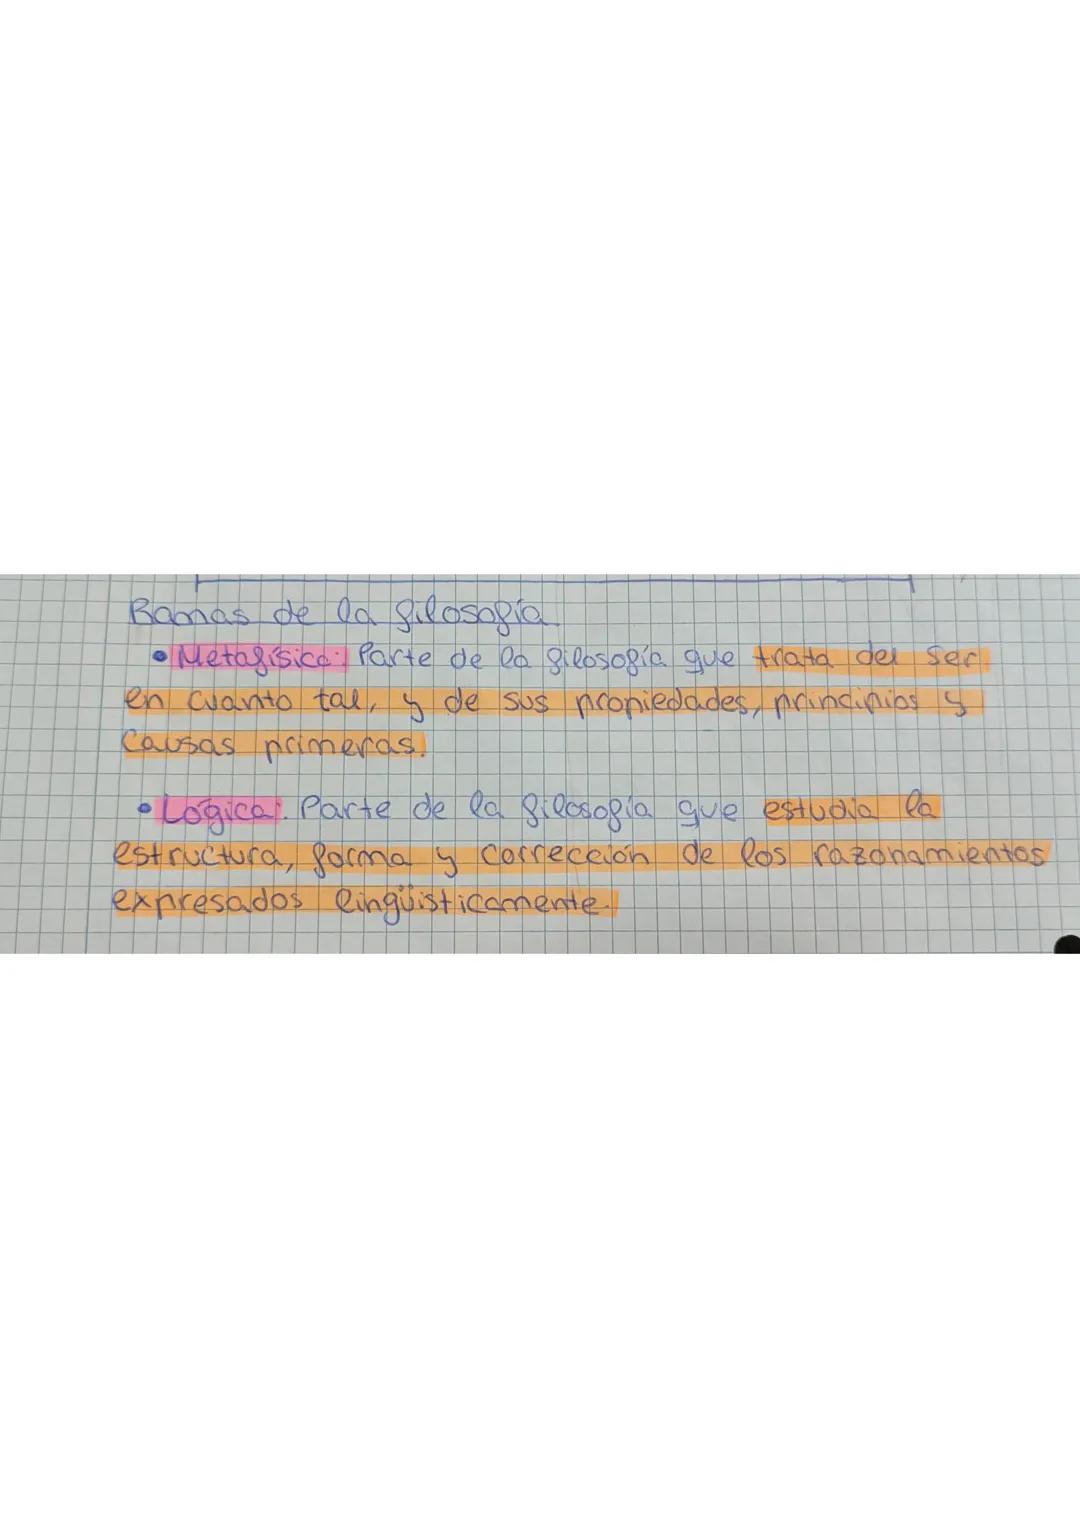 Ramas de la filosofía
• Metafísica: Parte de la filosofía que trata del ser
en cuanto tal, y de sus propiedades, principios y
causas primeras.
• Lógica: Parte de la filosofía que estudia la
estructura, forma y corrección de los razonamientos
expresados lingüísticamente.